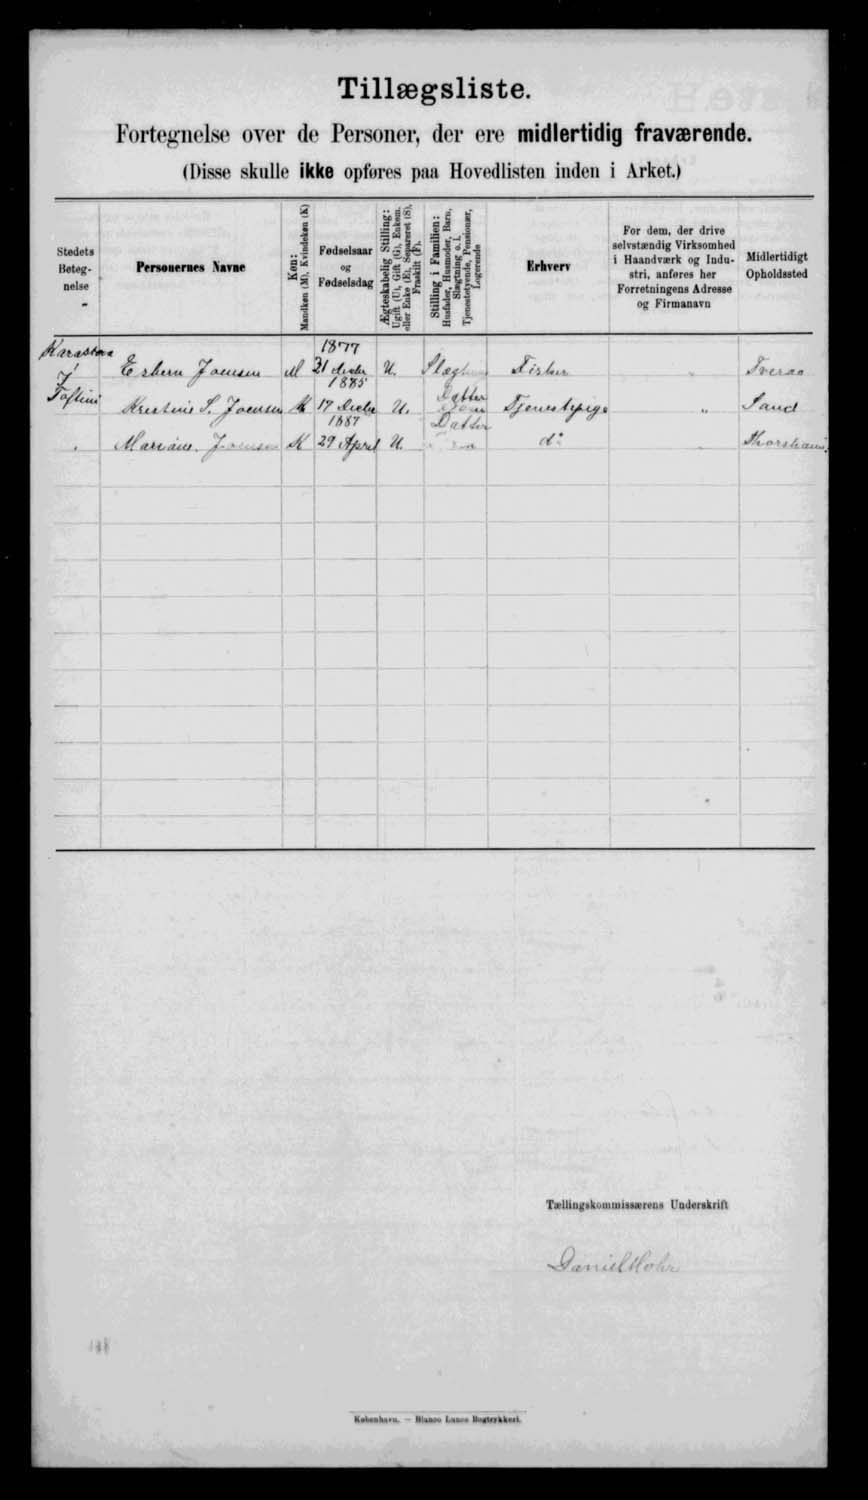 Tillægsliste.
Fortegnelse over de Personer, der ere midlertidig fraværende.
(Disse skulle ikke opføres paa Hovedlisten inden i Arket.)
Stedets Betegnelse
Personernes Navne
Køn: Mandkøn (M), Kvindekøn (K)
Fødselsaar og Fødselsdag
Ægteskabelig Stilling: Ugift (U), Gift (G), Enkem. eller Enke (E), Separeret (S), Fraskilt (F).
Stilling i Familien: Husfader, Husmoder, Barn, Slægtning o. l. Tjenestetyende, Pensionær, Logerende
Erhverv
For dem, der drive selvstændig Virksomhed i Haandværk og Industri, anføres her Forretningens Adresse og Firmanavn
Midlertidigt Opholdssted
Karastova 1877
Esbern Joensen M 21 U. Fisker " Tveraa
Toftini 1885 Datter
Kristine S. Joensen K 17 U. Tjenestepige " Sand
1887 Datter
" Mariane Joensen K 29 April U. do " Thorshavn
Tællingskommissærens Underskrift
Daniel Mohr
København. — Bianco Lunos Bogtrykkeri.